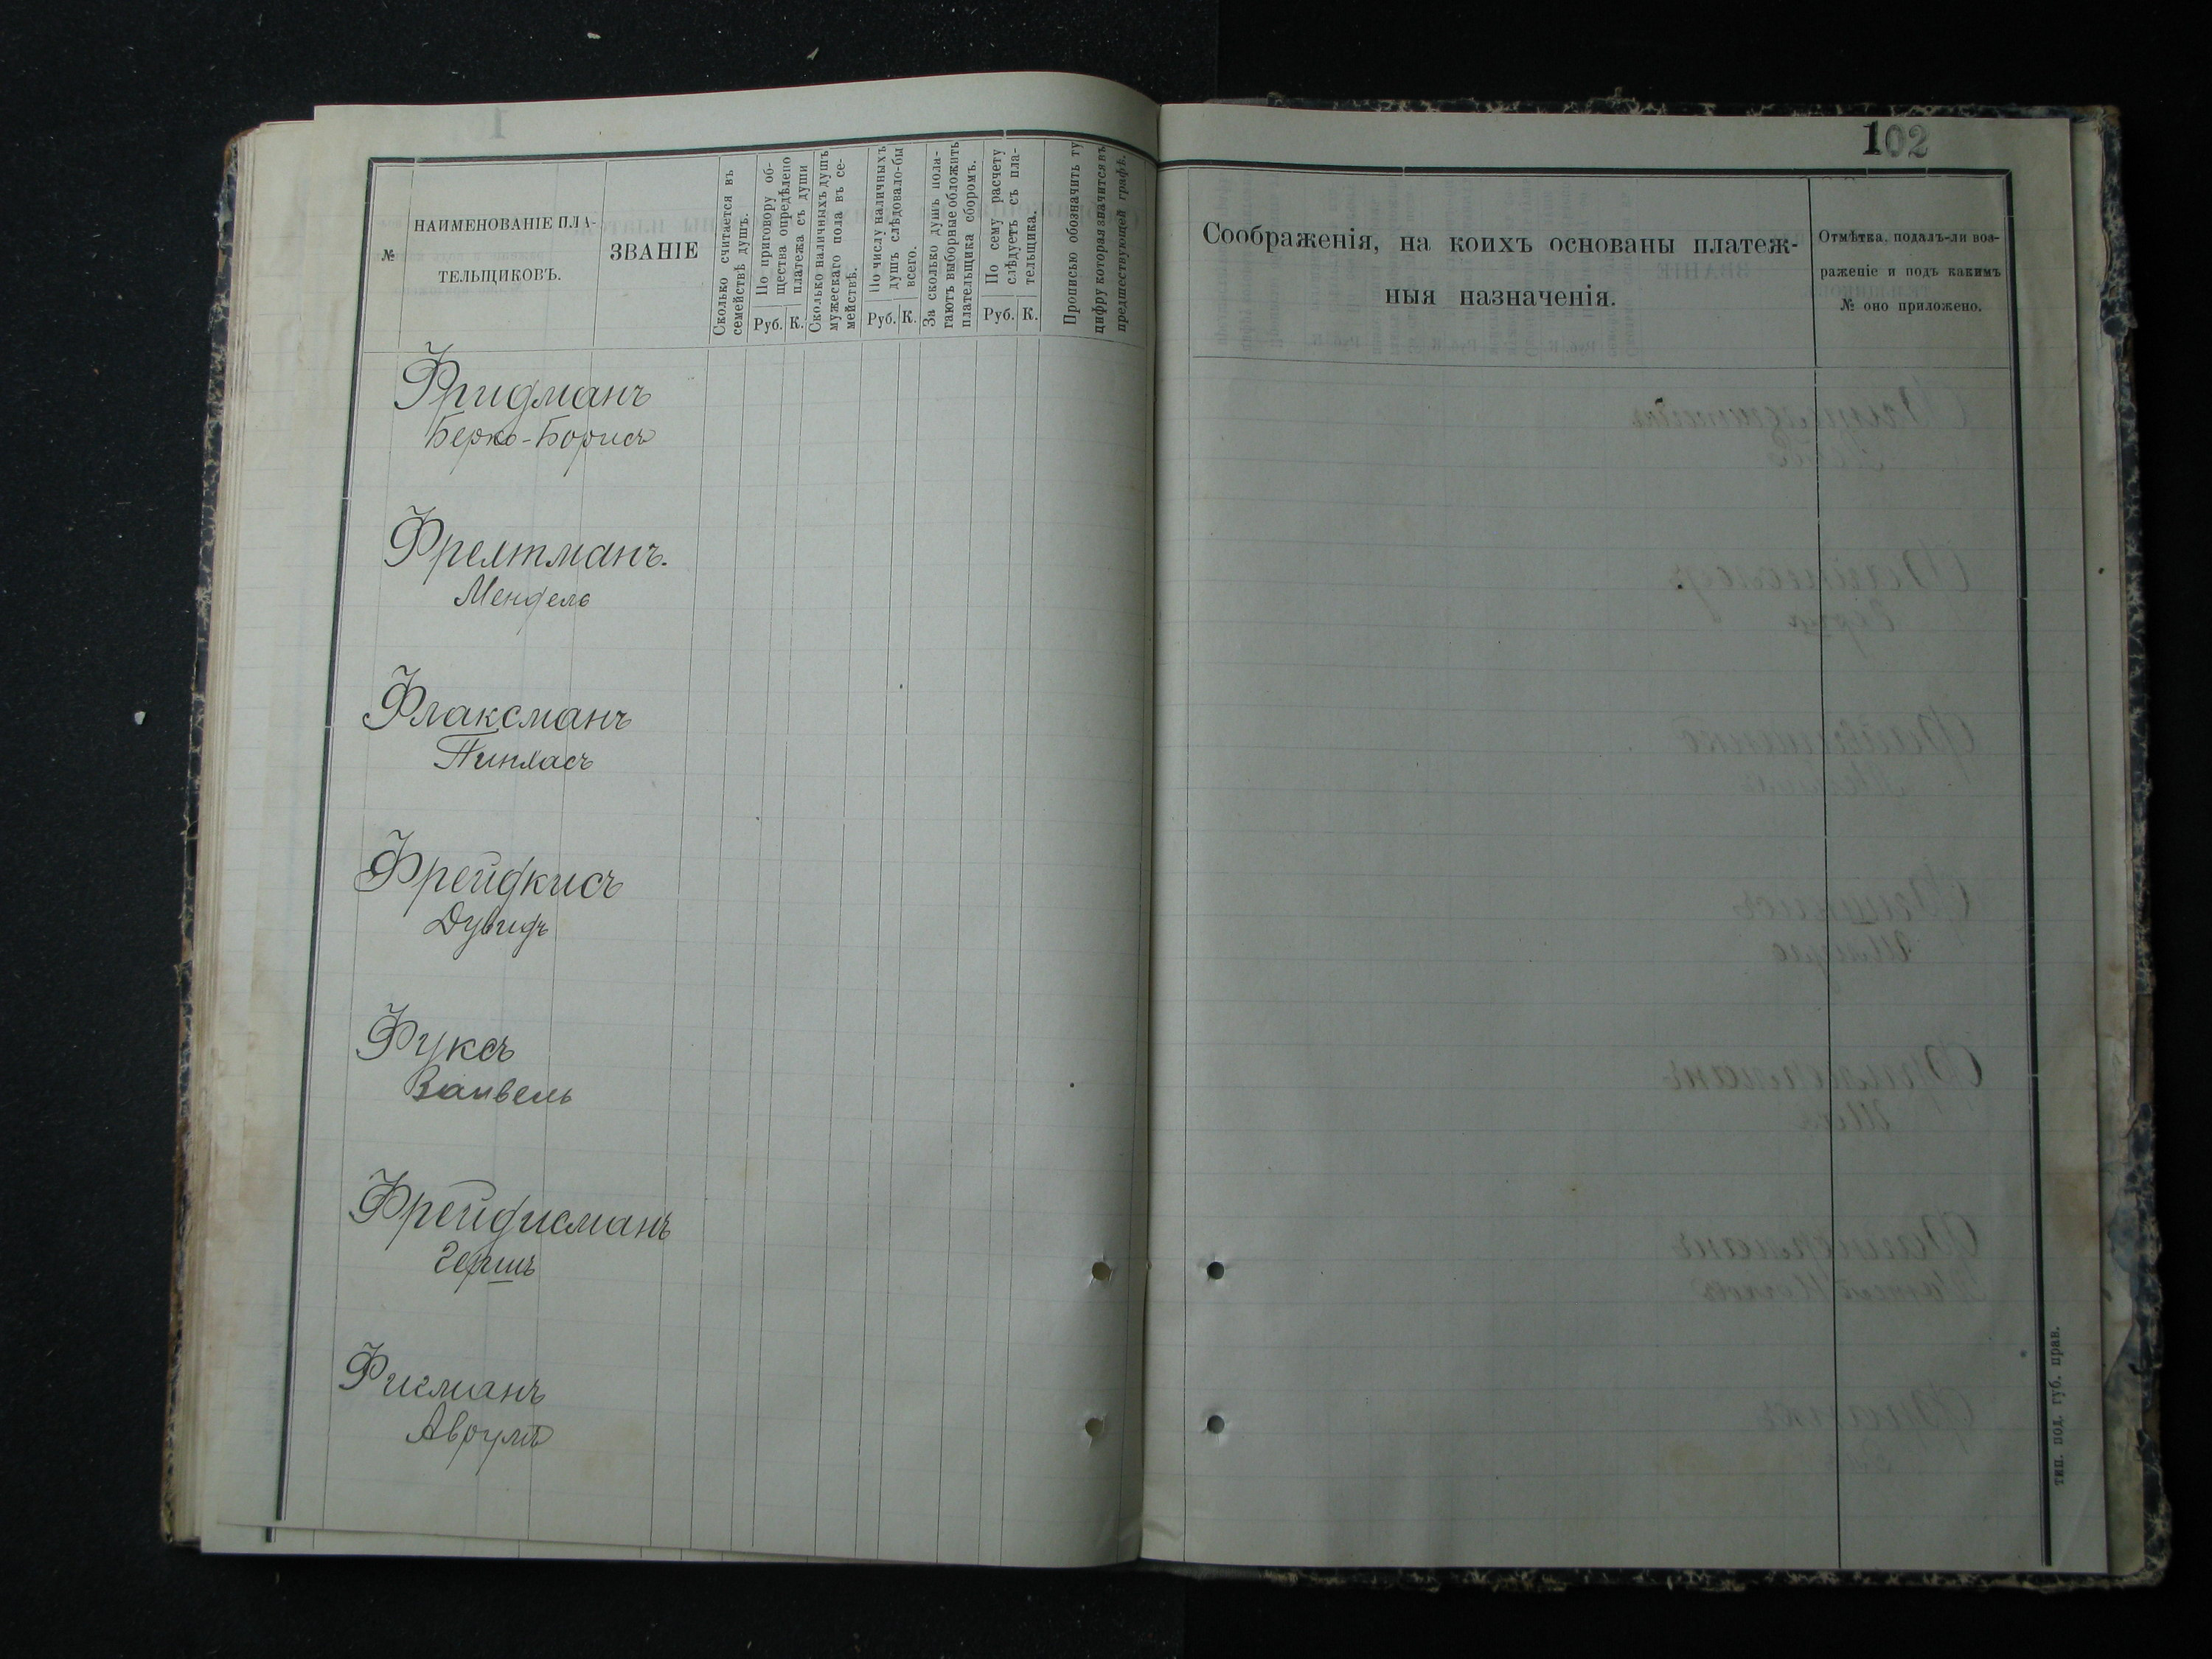 102
№
НАИМЕНОВАНІЕ ПЛА-
ТЕЛЬЩИКОВЪ.
ЗВАНІЕ
Сколько считается въ
семействѣ душъ.
По приговору об-
щества опредѣлено
платежа съ души
Руб. К.
Сколько наличныхъ душъ
мужескаго пола въ се-
мействѣ.
По числу наличныхъ
душъ слѣдовало-бы
всего.
Руб. К.
За сколько душъ пола-
гаютъ выборные обложить
плательщика сборомъ.
По сему расчету
слѣдуетъ съ пла-
тельщика.
Руб. К.
Прописью обозначить ту
цифру которая значится въ
предшествующей графѣ.
Соображенія, на коихъ основаны платеж-
ныя назначенія.
Отмѣтка, подалъ-ли воз-
раженіе и подъ какимъ
№ оно приложено.
Фридманъ
Берко-Борисъ
Фрелтманъ.
Мендель
Флаксманъ
Пинхасъ
Фрейдкисъ
Дувидъ
Фуксъ
Занвель
Фрейдисманъ
Гершъ
Фисманъ
Аврумъ
тип. под. губ. прав.